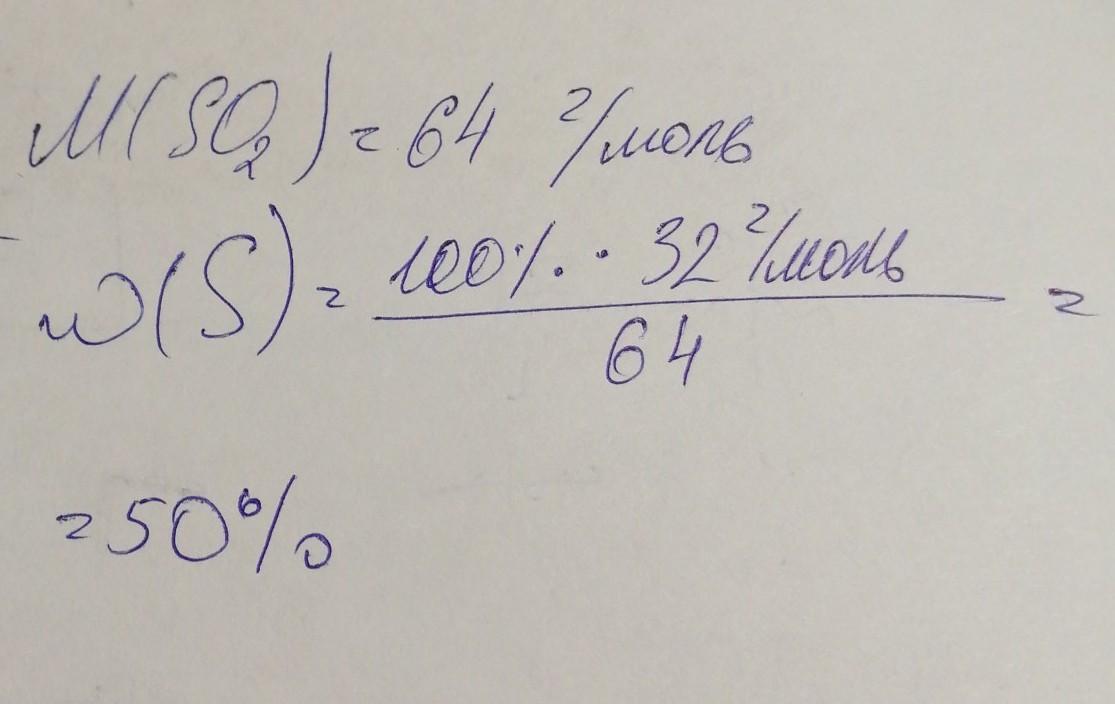 M(SO₂) = 64 г/моль
ω(S) = 100% · 32 г/моль / 64 =
= 50%